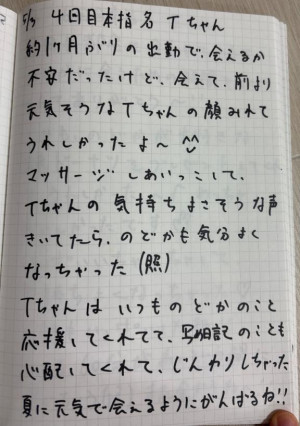 5/3 4回目本指名 Tちゃん
約1ヶ月ぶりの出勤で、会えるか
不安だったけど、会えて、前より
元気そうなTちゃんの顔みれて
うれしかったよ〜 ^^
マッサージしあいっこして、
Tちゃんの気持ちよさそうな声
きいてたら、のどかも気分よく
なっちゃった(照)
Tちゃんはいつものどかのこと
応援してくれてて、写メ日記のことも
心配してくれて、じんわりしちゃった
夏に元気で会えるようにがんばるね!!